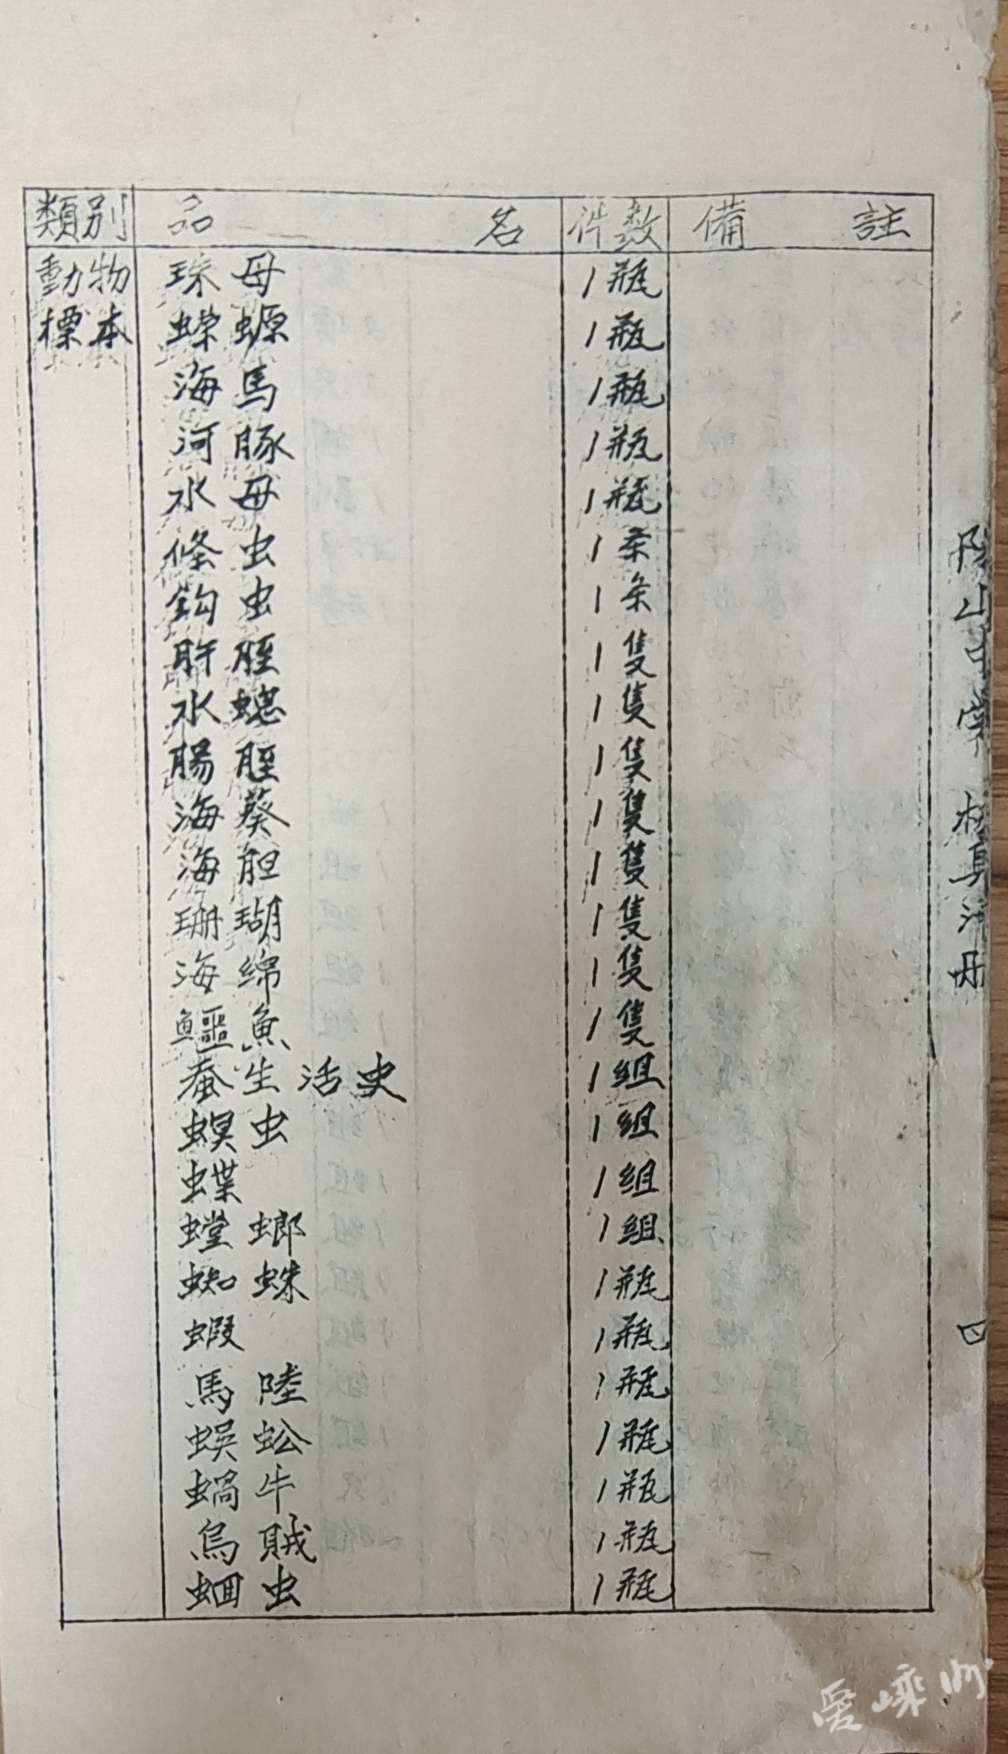 類別 品名 件数 備註
動物 珠母 1瓶
標本 蠑螈 1瓶
海馬 1瓶
河豚 1瓶
水母 1瓶
條虫 1条
鈎虫 1条
肝脛 1隻
水螅 1隻
腸脛 1隻
海葵 1隻
海胆 1隻
珊瑚 1隻
海綿 1隻
鱷魚 1隻
蚕生活史 1組
螟虫 1組
蝶 1組
螳螂 1組
蜘蛛 1瓶
蝦 1瓶
馬陸 1瓶
蜈蚣 1瓶
蝸牛 1瓶
烏賊 1瓶
蛔虫 1瓶
山中学 校具清册
四
愛嵊州